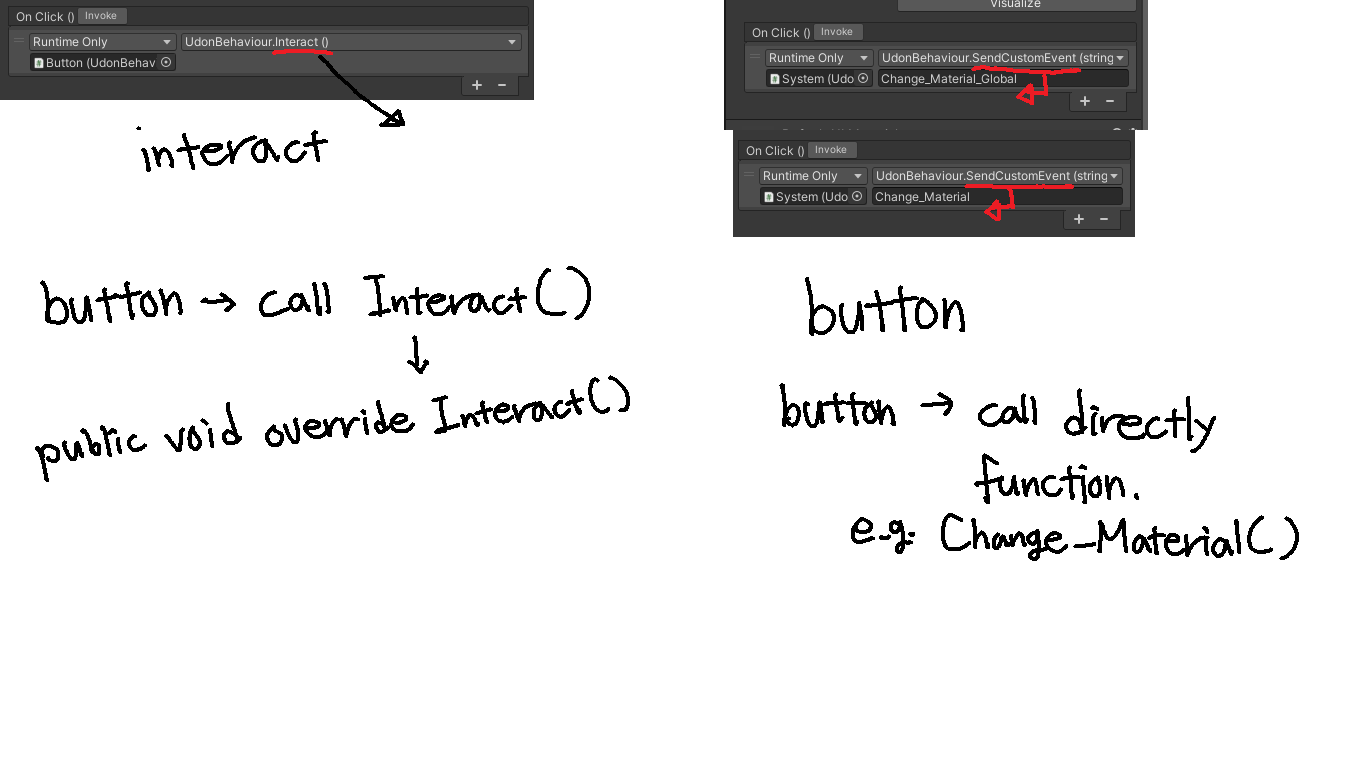 On Click () Invoke
Runtime Only UdonBehaviour.Interact ()
Button (UdonBehav
+ −
interact
button → call Interact()
↓
public void override Interact()
Visualize
On Click () Invoke
Runtime Only UdonBehaviour.SendCustomEvent (string
System (Udo Change_Material_Global
+ −
On Click () Invoke
Runtime Only UdonBehaviour.SendCustomEvent (string
System (Udo Change_Material
+ −
button
button → call directly
function.
e.g. Change_Material()